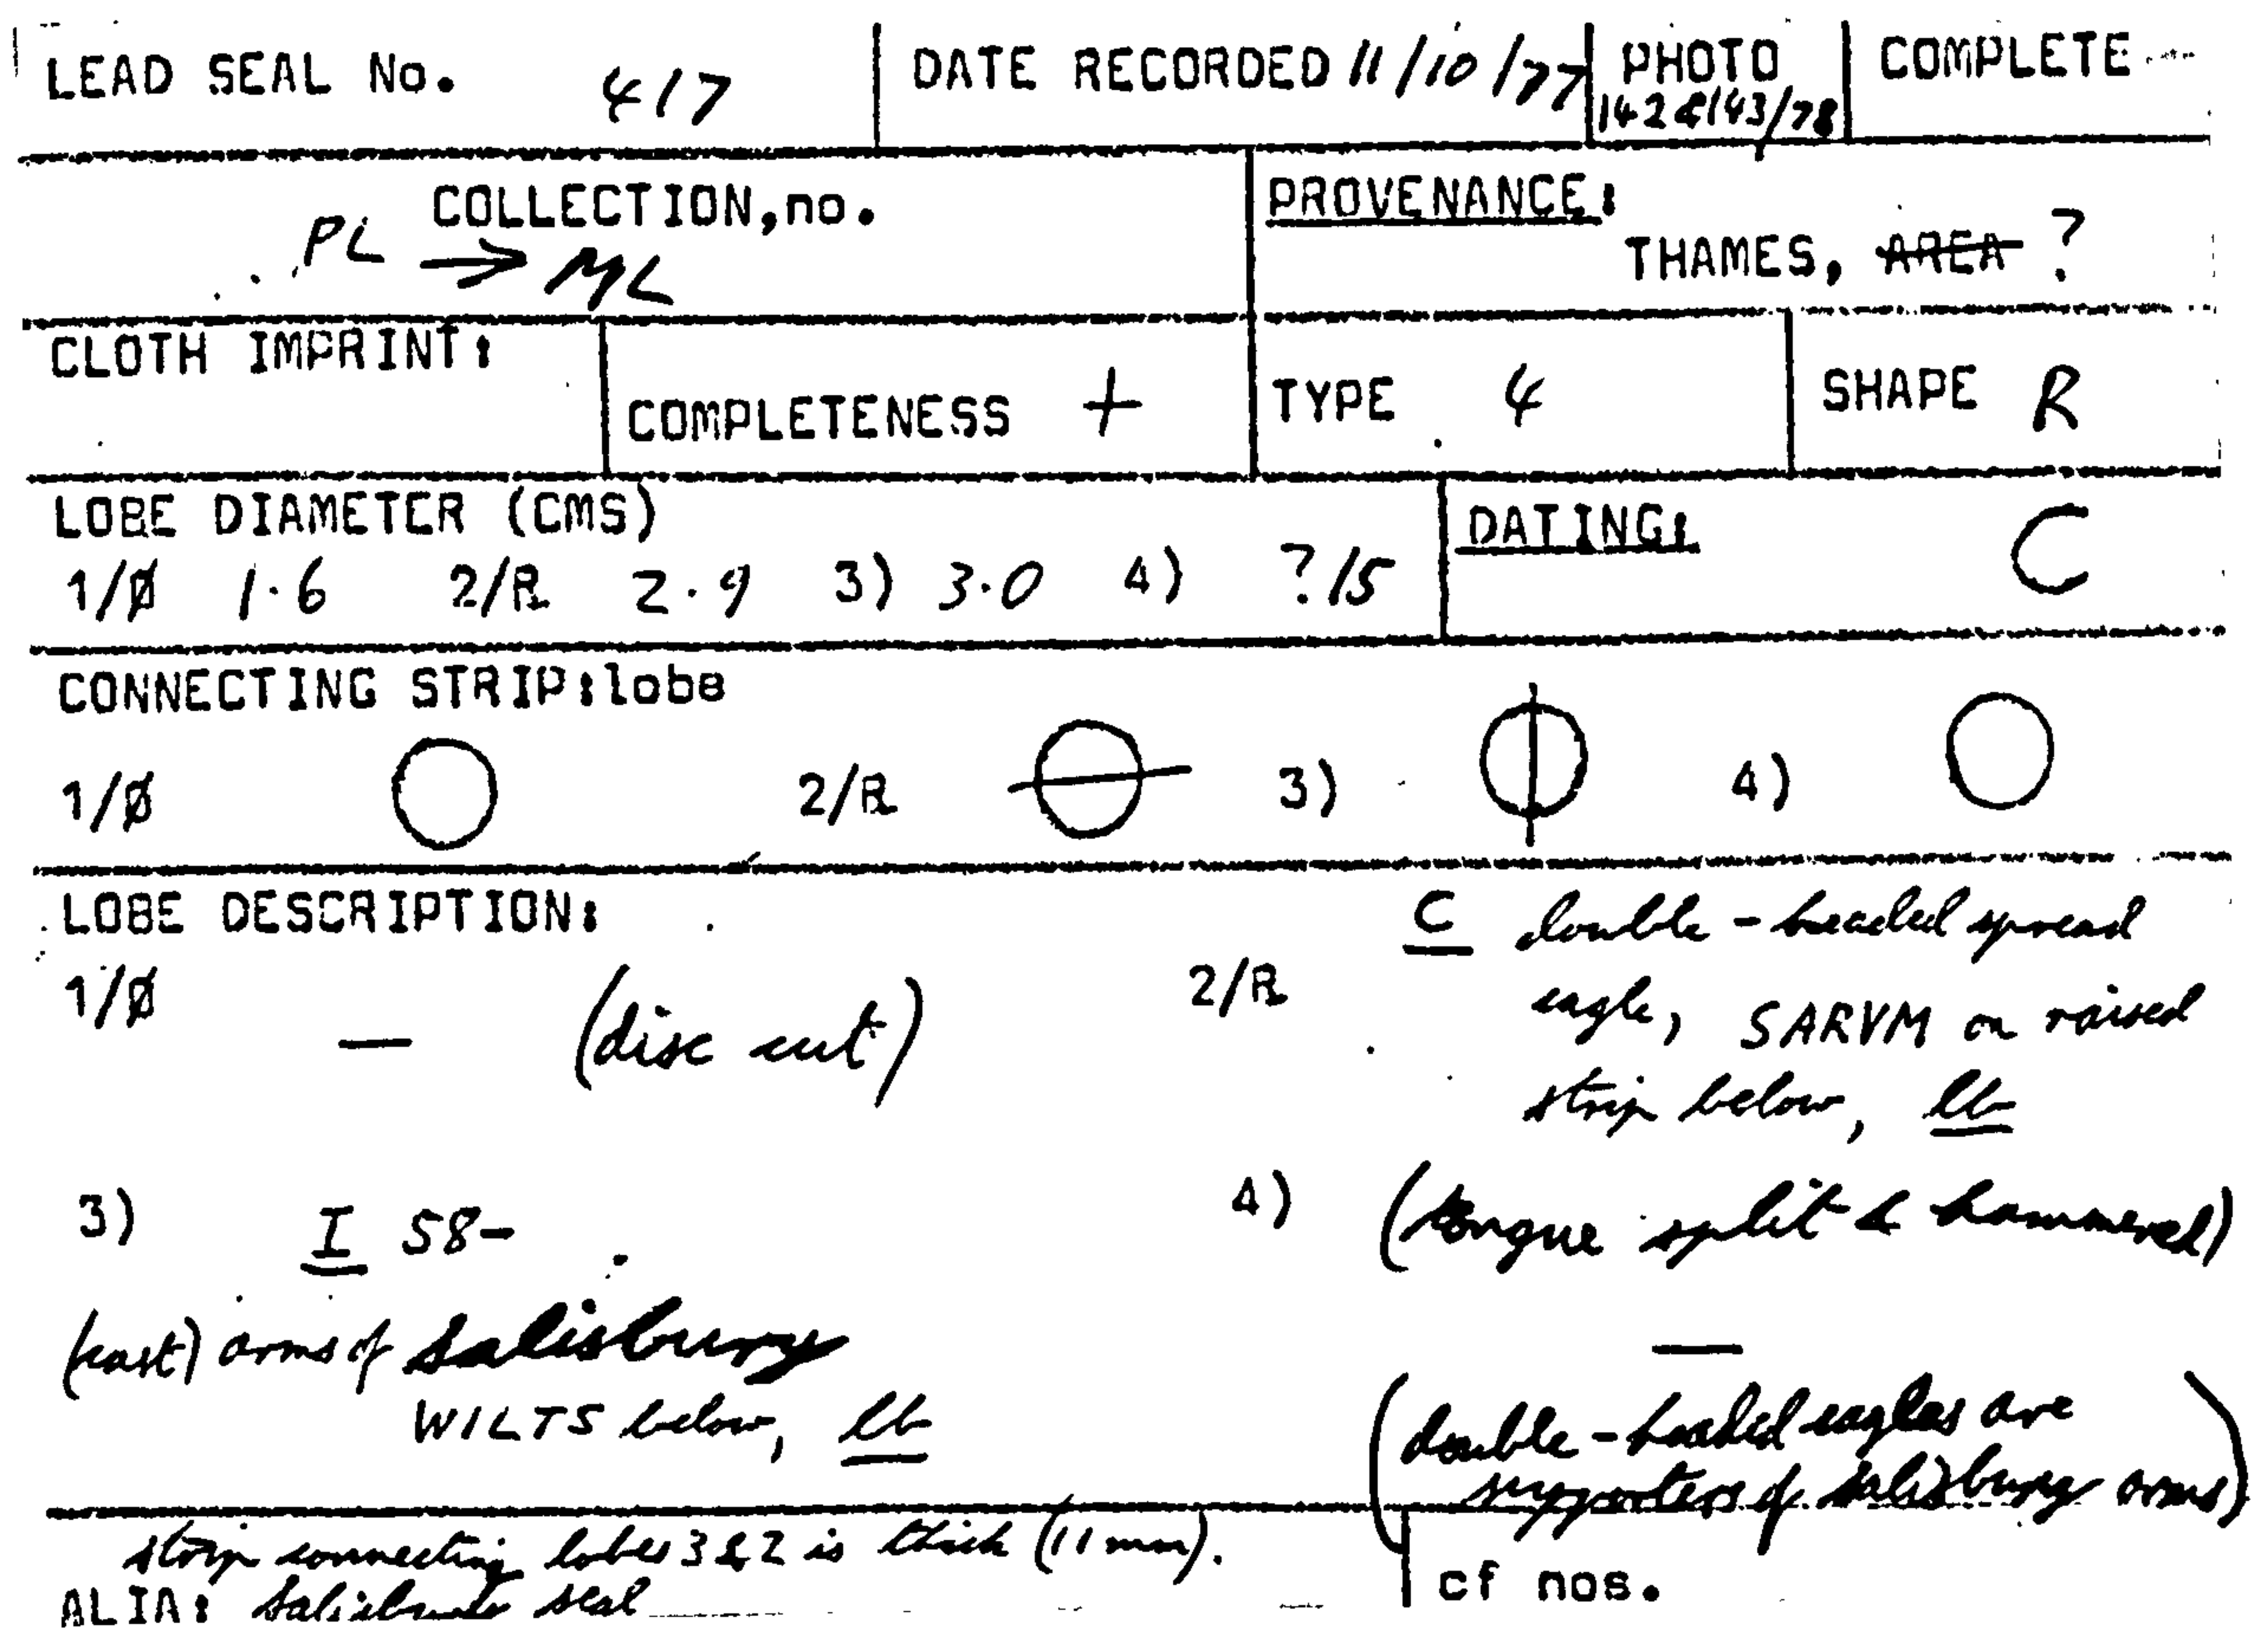 LEAD SEAL No. 417 DATE RECORDED 11/10/77 PHOTO COMPLETE
142 & 143/78
COLLECTION, no. PROVENANCE:
PL → ML THAMES, AREA ?
CLOTH IMPRINT: COMPLETENESS + TYPE 4 SHAPE R
LOBE DIAMETER (CMS) DATING: C
1/Ø 1.6 2/R 2.9 3) 3.0 4) ?15
CONNECTING STRIP: lobe
1/Ø 2/R 3) 4)
LOBE DESCRIPTION:
1/Ø — (disc cut)
2/R C double-headed spread
eagle, SARVM on raised
strip below, lb
3) I 58-
(cast) arms of Salisbury
WILTS below, lb
4) (tongue split & hammered)
—
(double-headed eagles are
supporters of Salisbury arms)
strip connecting lobes 3 & 2 is thick (11 mm).
ALIA: seal
cf nos.